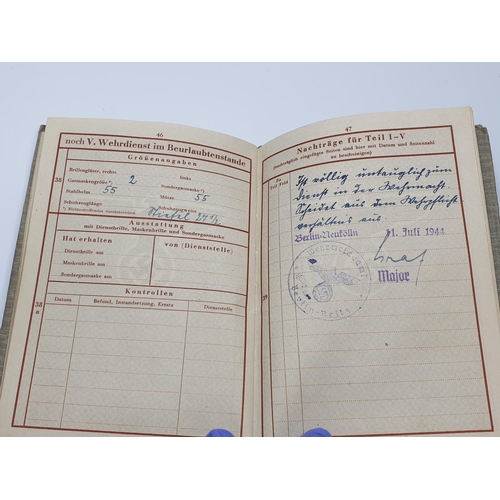 46
noch V. Wehrdienst im Beurlaubtenstande
Größenangaben
Brillengläser, rechts: links:
38 Gasmaskengröße*): 2 Sondergasmaske*)
Stahlhelm: 55 Mütze: 55
Schuhzeuglänge Schuhzeugweite
Stiefel 27 ½
Ausstattung
mit Dienstbrille, Maskenbrille und Sondergasmaske
Hat erhalten von (Dienststelle)
Dienstbrille am
Maskenbrille am
Sondergasmaske am
Kontrollen
38 a Datum Befund, Instandsetzung, Ersatz Dienststelle
47
Nachträge für Teil I–V
(Nachträglich eingefügte Seiten sind hier mit Datum und Seitenzahl
zu bescheinigen)
Zu Teil Feld
Ist völlig untauglich zum
Dienst in der Wehrmacht.
Scheidet aus dem Wehrpflicht
verhältnis aus
Berlin-Neukölln 11. Juli 1944
Major
39